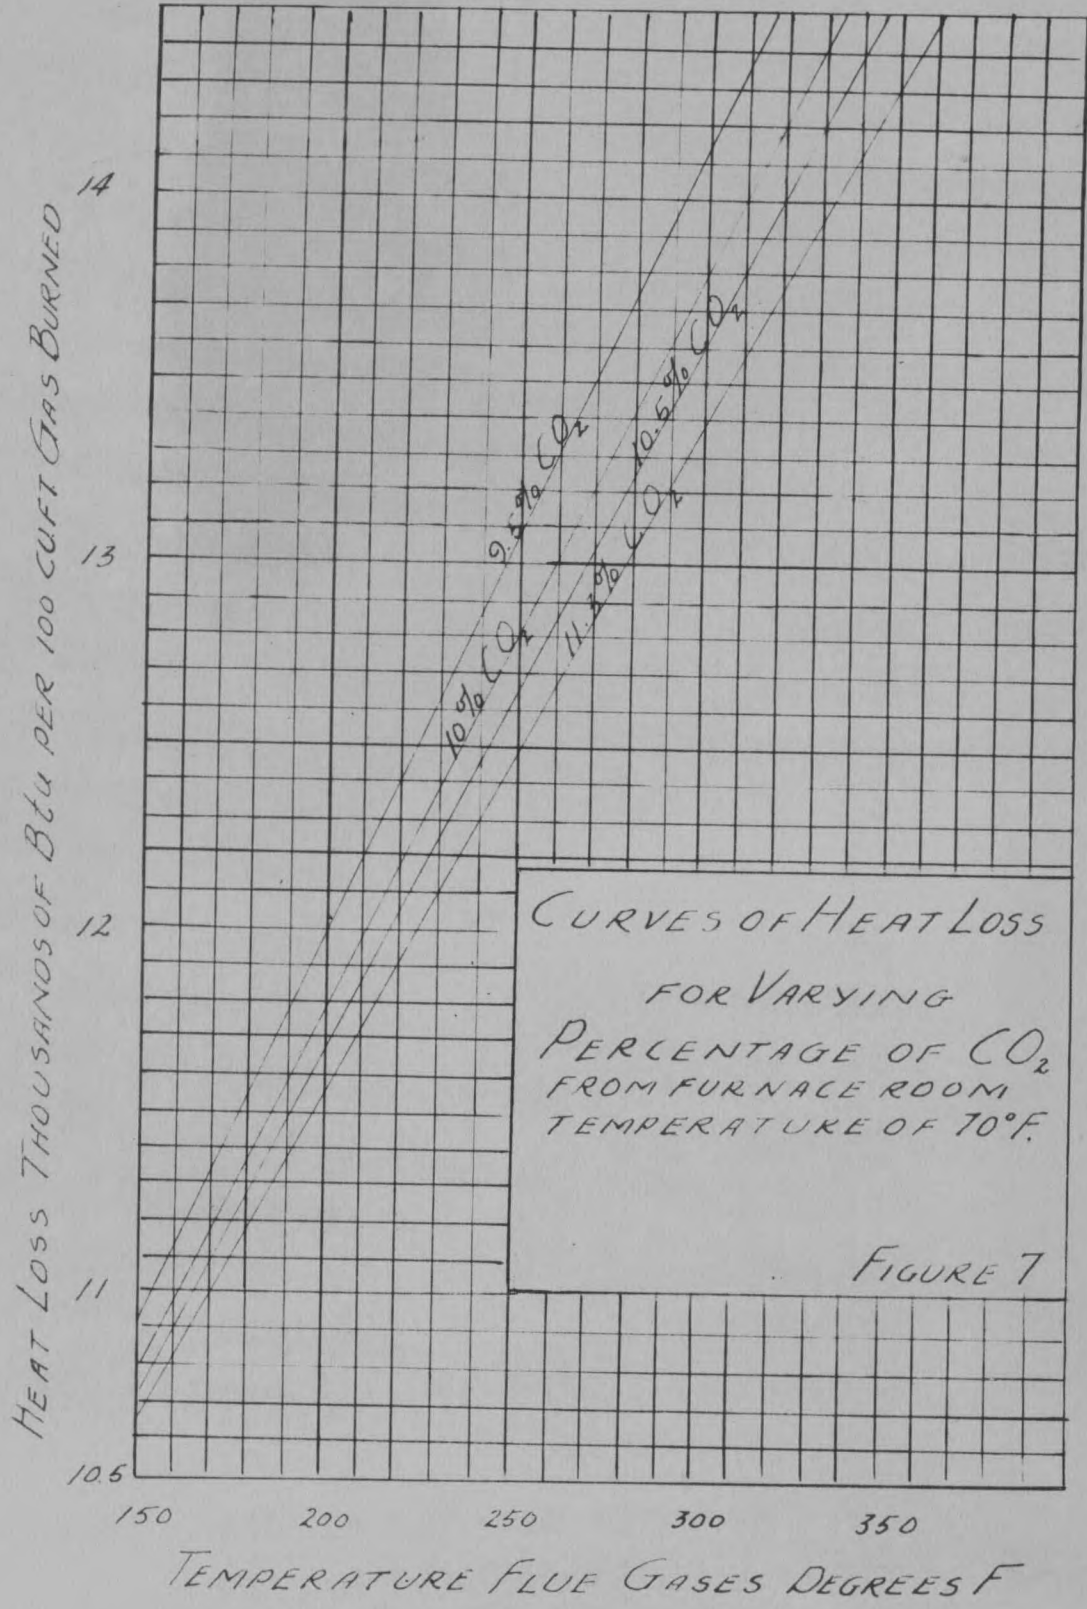 14
13
12
11
10.5
HEAT LOSS THOUSANDS OF Btu PER 100 CU.FT GAS BURNED
9.5% CO2
10% CO2
10.5% CO2
11.3% CO2
CURVES OF HEAT LOSS
FOR VARYING
PERCENTAGE OF CO2
FROM FURNACE ROOM
TEMPERATURE OF 70°F.
FIGURE 7
150 200 250 300 350
TEMPERATURE FLUE GASES DEGREES F